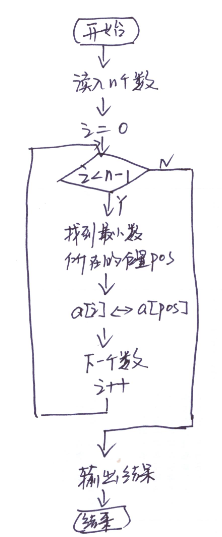 开始
读入n个数
i=0
i<n-1
N
Y
找到最小数
所在的位置pos
a[i]↔a[pos]
下一个数
i++
输出结果
结束